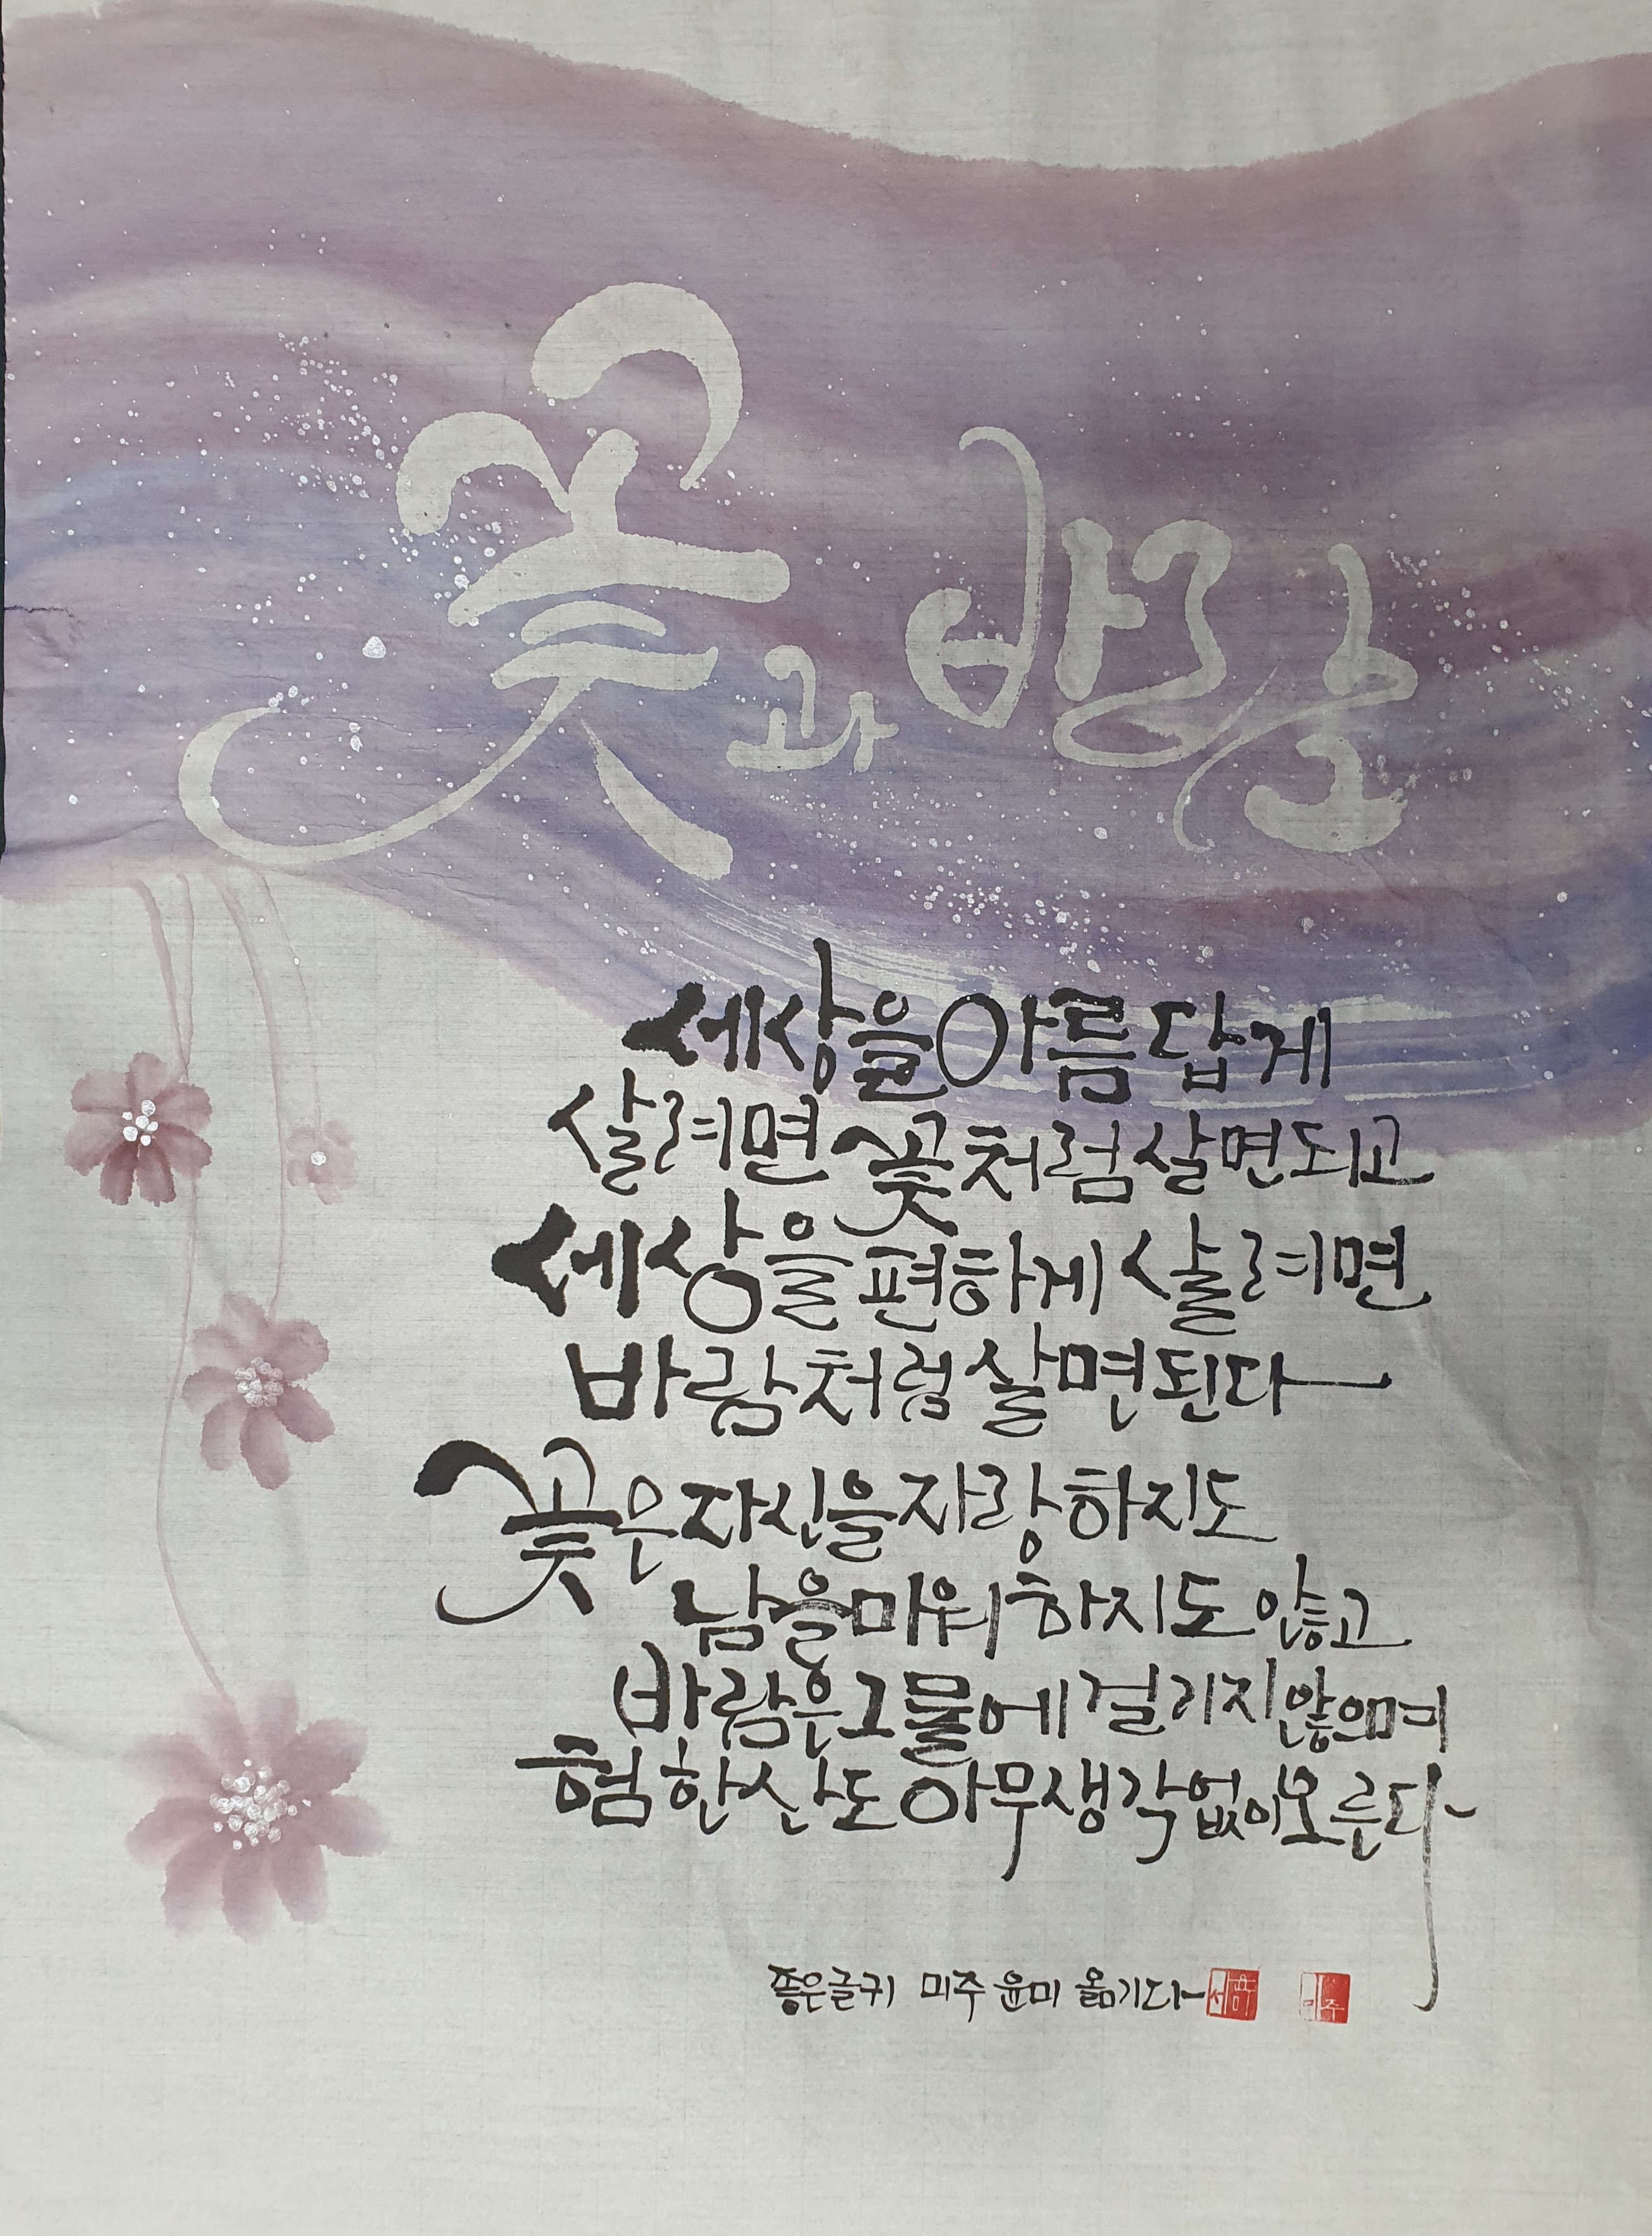 꽃과 바람
세상을 아름답게
살려면 꽃처럼 살면 되고
세상을 편하게 살려면
바람처럼 살면 된다
꽃은 자신을 자랑하지도
남을 미워하지도 않고
바람은 그물에 걸리지 않으며
험한 산도 아무 생각 없이 오른다
좋은글귀 미주 윤미 옮기다
미주